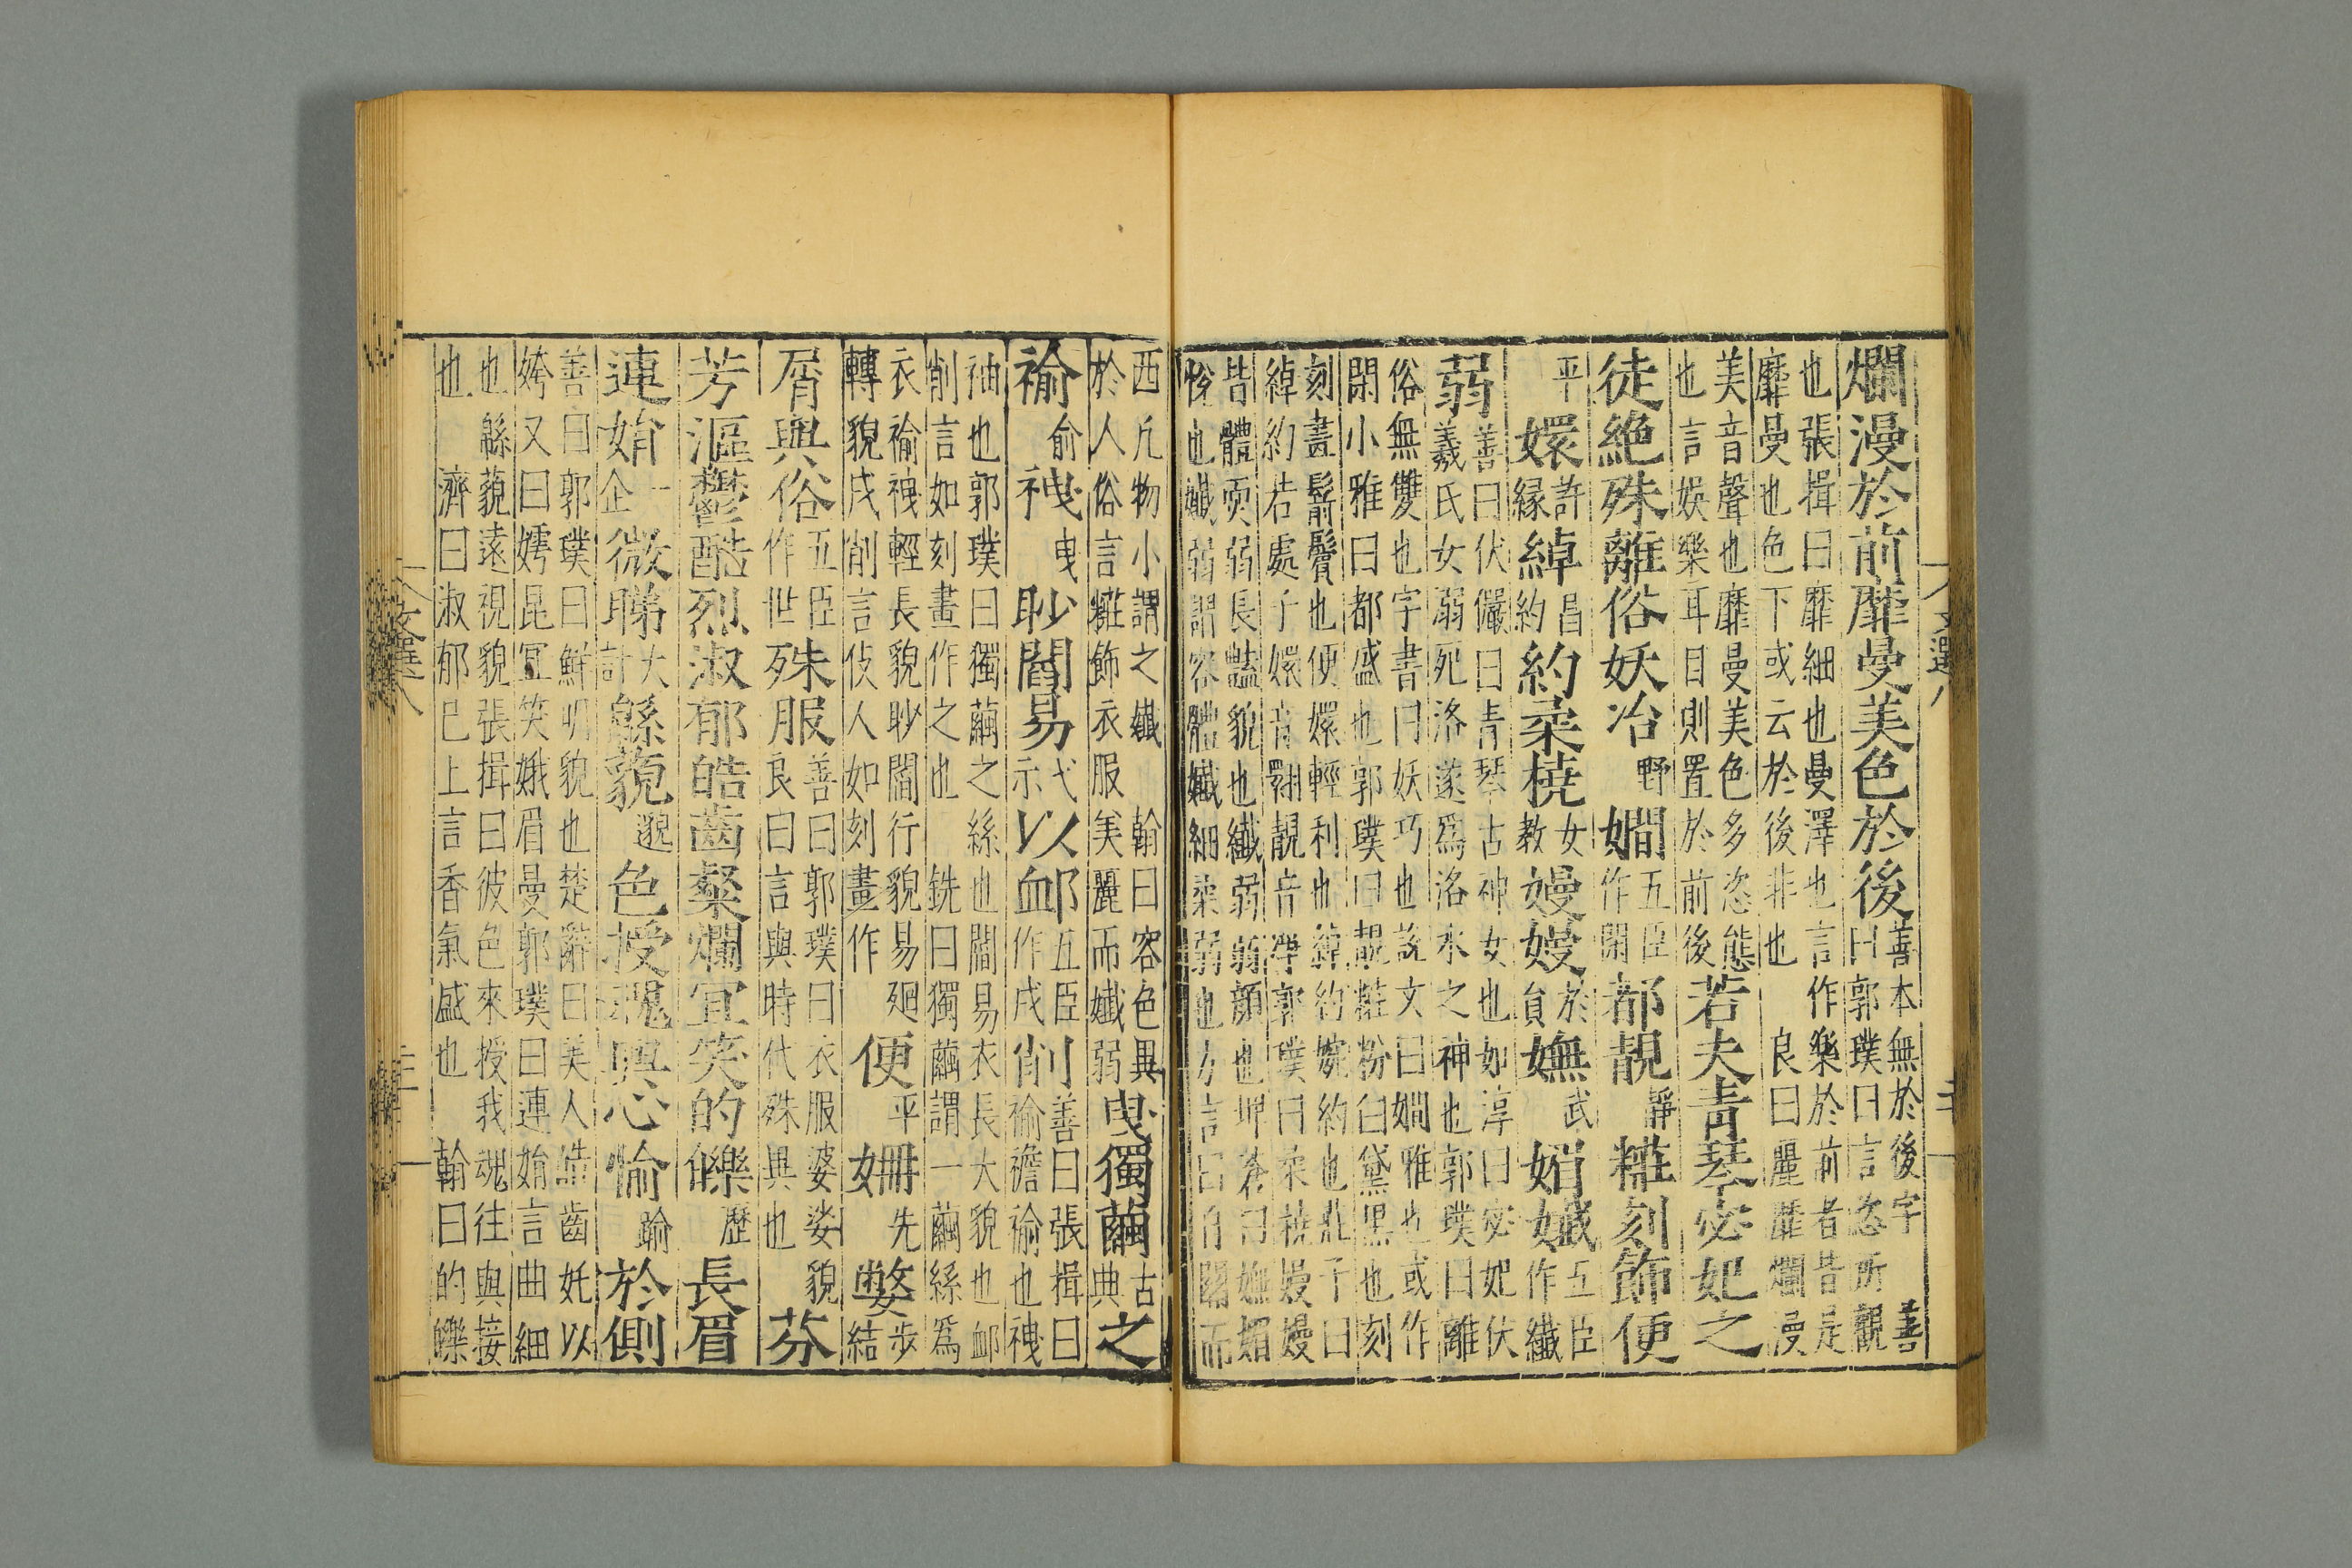 爛漫於前靡曼美色於後善本無於後字 善曰郭璞曰言恣所觀
也張揖曰靡細也曼澤也言作樂於前者皆是靡曼也色下或云於後非也 良曰麗靡爛漫
美音聲也靡曼美色多恣態也言娛樂耳目則置於前後若夫青琴宓妃之
徒絕殊離俗妖冶野嫺五臣作閑都靚靜糚刻飾便
平嬛許緣綽昌約約柔橈女教嫚嫚於負嫵武媚孅五臣作纖
弱善曰伏儼曰青琴古神女也如淳曰宓妃伏羲氏女弱死洛遂爲洛水之神也郭璞曰離
俗無雙也字書曰妖巧也說文曰嫺雅也或作閑小雅曰都盛也郭璞曰靚糚粉白黛黑也刻
刻畫鬋鬢也便嬛輕利也綽約婉約也莊子曰綽約若處子嬛音翾靚音淨郭璞曰柔橈嫚嫚
皆體耎弱長豔貌也纖弱弱顏也埤蒼曰嫵媚悅也孅弱謂容體孅細柔弱也方言曰自關而
西凡物小謂之孅 翰曰容色異於人俗言糚飾衣服美麗而孅弱曳獨繭古典之
褕俞袣曳眇閻易弋示以䘏五臣作戌削善曰張揖曰褕襜褕也袣
袖也郭璞曰獨繭之絲也閻易衣長大貌也䘏削言如刻畫作之也 銑曰獨繭謂一繭絲爲
衣褕袣輕長貌眇閻行貌易廻轉貌戌削言伎人如刻畫作便平姍先嫳步結
屑與俗五臣作世殊服善曰郭璞曰衣服婆娑貌 良曰言與時代殊異也芬
芳漚鬱酷烈淑郁皓齒粲爛宜笑的皪歷長眉
連娟一企微睇大計緜藐邈色授魂與心愉踰於側
善曰郭璞曰鮮明貌也楚辭曰美人皓齒姹以姱又曰嫮昆宜笑娥眉曼郭璞曰連娟言曲細
也緜藐遠視貌張揖曰彼色來授我魂往與接也 濟曰淑郁已上言香氣盛也 翰曰的皪
文選八
文選八